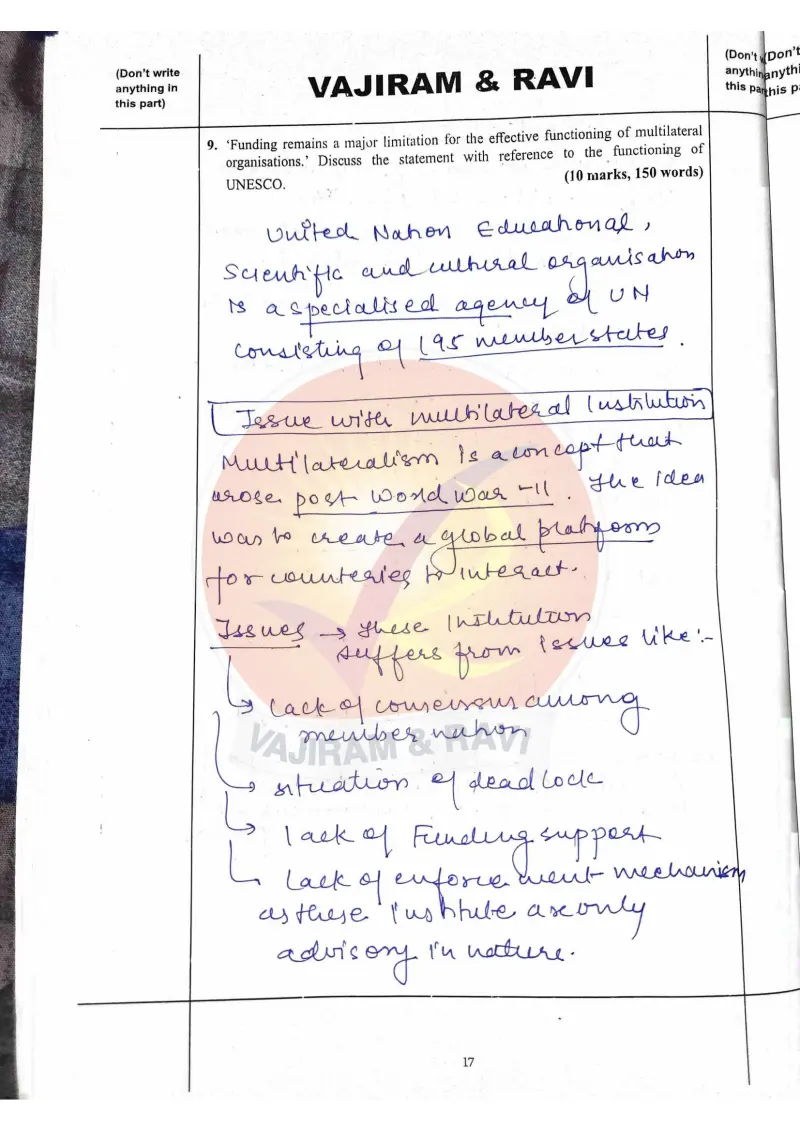 (Don't write
anything in
this part)
VAJIRAM & RAVI
(Don't
anythin
this par
(Don't
anythi
this p
9. 'Funding remains a major limitation for the effective functioning of multilateral
organisations.' Discuss the statement with reference to the functioning of
UNESCO. (10 marks, 150 words)
United Nation Educational,
Scientific and cultural organisation
is a specialised agency of UN
consisting of 195 member states.
Issue with multilateral Institution
Multilateralism is a concept that
arose post World War -II. The idea
was to create a global platform
for counteries to interact.
Issues → These Institution
suffers from issues like :-
Lack of consensus among
member nation
situation of deadlock
lack of Funding support
Lack of enforcement mechanism
as these institute are only
advisory in nature.
VAJIRAM & RAVI
17